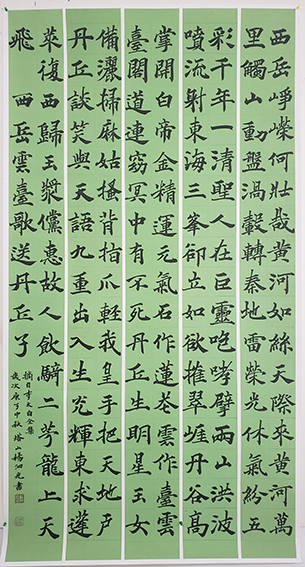 西岳崢嶸何壯哉黃河如絲天際來黃河萬
里觸山動盤渦轂轉秦地雷榮光休氣紛五
彩千年一清聖人在巨靈咆哮擘兩山洪波
噴流射東海三峯卻立如欲摧翠崖丹谷高
掌開白帝金精運元氣石作蓮花雲作臺雲
臺閣道連窈冥中有不死丹丘生明星玉女
備灑掃麻姑搔背指爪輕我皇手把天地戶
丹丘談笑與天語九重出入生光輝東求蓬
萊復西歸玉漿儻惠故人飲騎二茅龍上天
飛 西岳雲臺歌送丹丘子
摘自李白全集
歲次庚子中秋